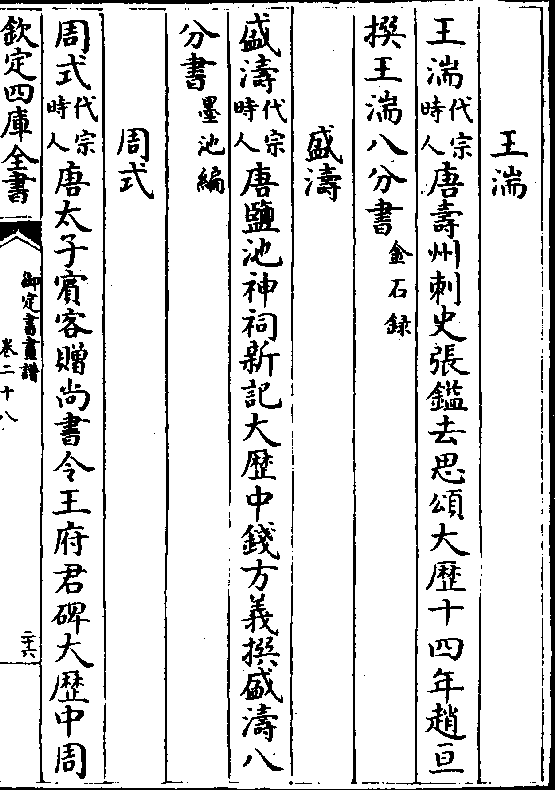 王湍
王湍代宗時人唐壽州刺史張鎰去思頌大歴十四年趙亘
撰王湍八分書金石録
盛濤
盛濤代宗時人唐鹽池神祠新記大歴中錢方義撰盛濤八
分書墨池編
周式
周式代宗時人唐太子賓客贈尚書令王府君碑大歴中周
欽定四庫全書
御定書畫譜
卷二十八
二十六